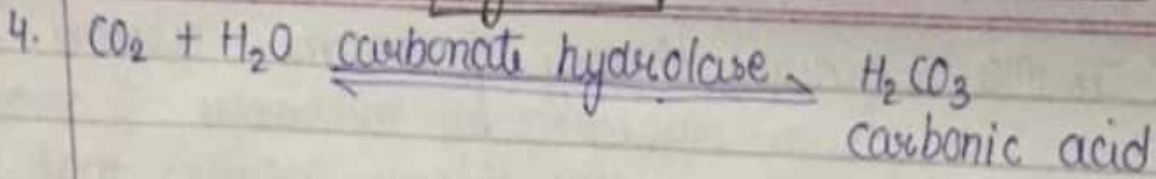 4. CO₂ + H₂O carbonate hydrolase ⇌ H₂CO₃
carbonic acid